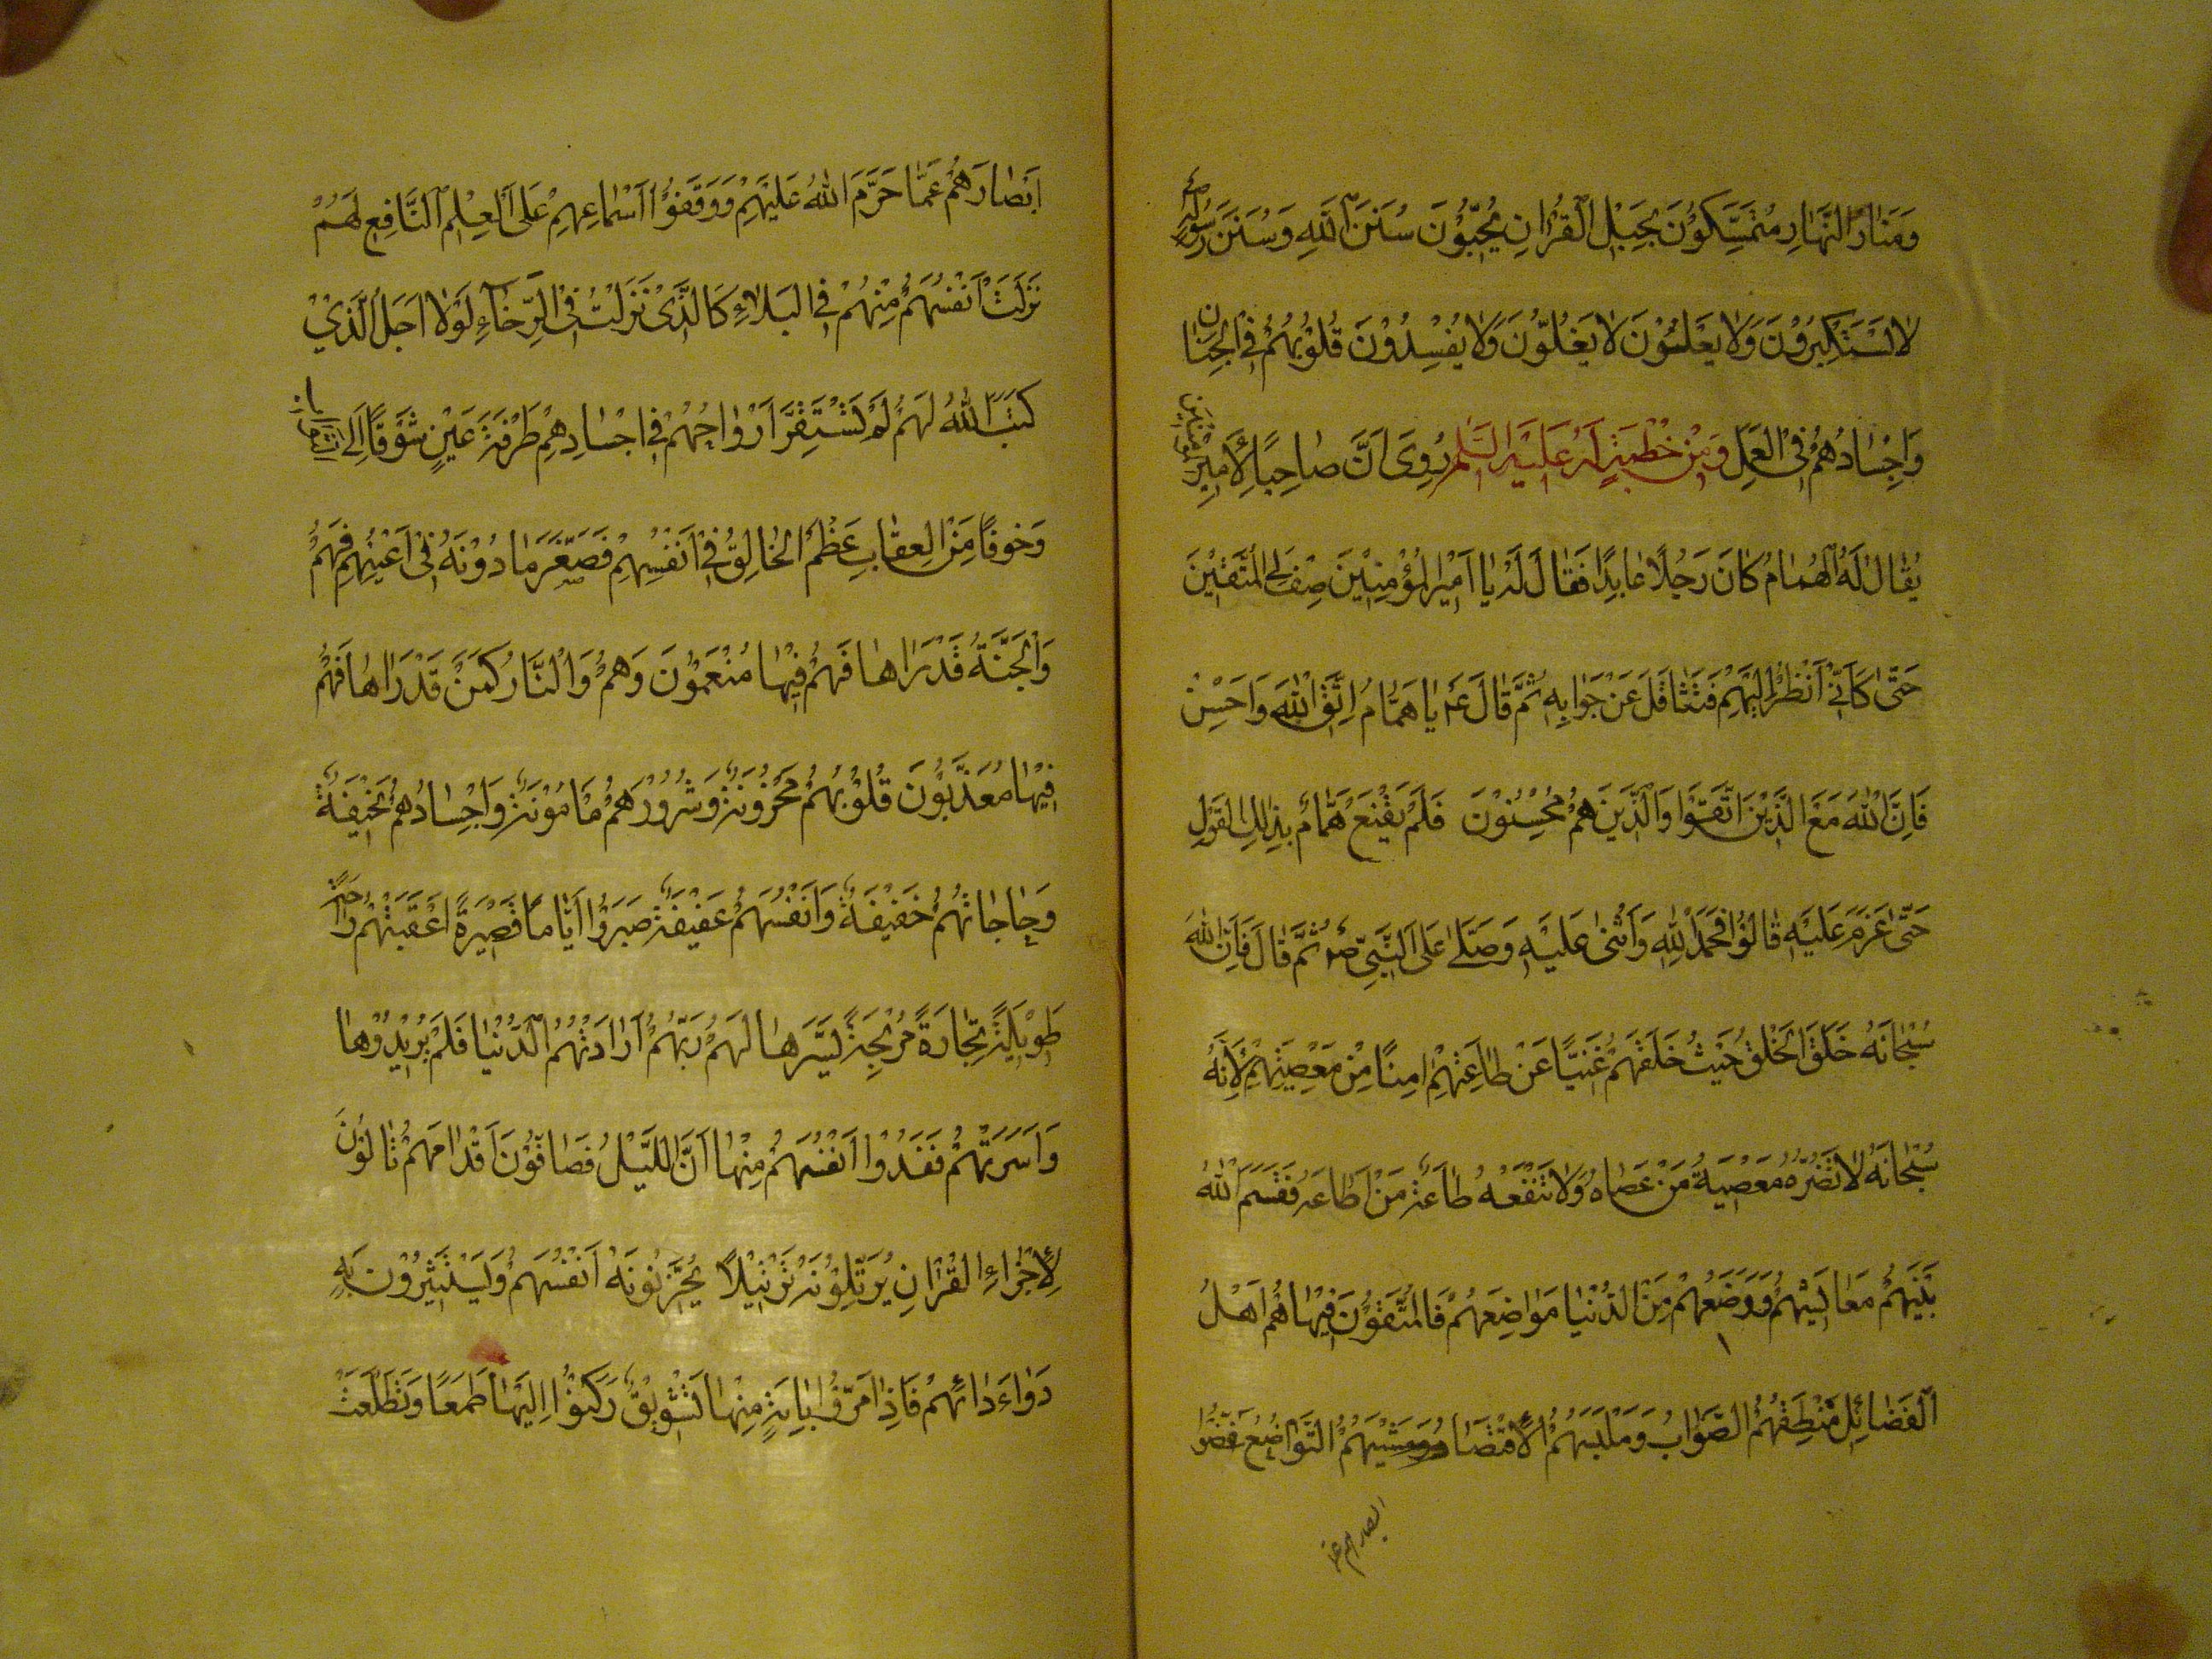 وَمَنَارُ النَّهَارِ مُتَمَسِّكُونَ بِحَبْلِ الْقُرْاٰنِ يُحِبُّوُنَ سُنَنَ اللهِ وَسُنَنَ رَسُولِهِ ص
لَا يَسْتَكْبِرُوْنَ وَلَا يَعْلُوْنَ لَا يَغُلُّوْنَ وَلَا يُفْسِدُوْنَ قُلُوْبُهُمْ فِي الْجِنَانِ
وَاَجْسَادُهُمْ فِي الْعَمَلِ وَمِنْ خُطْبَةٍ لَهُ عَلَيْهِ السَّلَمُ رُوِىَ اَنَّ صَاحِبًا لِاَمِيْرِ المُؤْمِنِين
يُقَالُ لَهُ الْهُمَامُ كَانَ رَجُلًا عَابِدًا فَقَالَ لَهُ يَا اَمِيْرَ الْمُؤْمِنِيْنَ صِفْ لِىَ الْمُتَّقِيْنَ
حَتّٰى كَاَنِّىْ اَنْظُرُ اِلَيْهِمْ فَتَثَاقَلَ عَنْ جَوَابِهِ ثُمَّ قَالَ ع يَا هَمَّامُ اِتَّقِ اللهَ وَاَحْسِنْ
فَاِنَّ اللهَ مَعَ الَّذِيْنَ اتَّقَوْا وَالَّذِيْنَ هُمْ مُحْسِنُوْنَ فَلَمْ يَقْنَعْ هَمَّامُ بِذٰلِكَ الْقَوْلِ
حَتّٰى عَزَمَ عَلَيْهِ قَالُوْا فَحَمِدَ لِلّٰهِ وَاَثْنٰى عَلَيْهِ وَصَلّٰى عَلَى النَّبِىِّ ص ثُمَّ قَالَ فَاِنَّ اللهَ
سُبْحَانَهُ خَلَقَ الْخَلْقَ حَيْثُ خَلَقَهُمْ غَنِيًّا عَنْ طَاعَتِهِمْ اٰمِنًا مِنْ مَعْصِيَتِهِمْ لِاَنَّهُ
سُبْحَانَهُ لَا تَضُرُّهُ مَعْصِيَةُ مَنْ عَصَاهُ وَلَا تَنْفَعُهُ طَاعَةُ مَنْ اَطَاعَهُ فَقَسَمَ اللهُ
بَيْنَهُمْ مَعَايِشَهُمْ وَوَضَعَهُمْ مِنَ الدُّنْيَا مَوَاضِعَهُمْ فَالْمُتَّقُوْنَ فِيْهَا هُمْ اَهْلُ
الْفَضَائِلِ مَنْطِقُهُمُ الصَّوَابُ وَمَلْبَسُهُمُ الْاِقْتِصَادُ وَمَشْيُهُمُ التَّوَاضُعُ غَضُّوْا
ابصارهم عما
اَبْصَارَهُمْ عَمَّا حَرَّمَ اللهُ عَلَيْهِمْ وَوَقَفُوْا اَسْمَاعِهِمْ عَلَى الْعِلْمِ النَّافِعِ لَهُمْ
نَزَلَتْ اَنْفُسُهُمْ مِنْهُمْ فِى الْبَلَاءِ كَالَّذِىْ نَزَلَتْ فِى الرَّخَاءِ لَوْلَا اَجَلُ الَّذِىْ
كَتَبَ اللهُ لَهُمْ لَمْ تَسْتَقِرَّ اَرْوَاحُهُمْ فِى اَجْسَادِهِمْ طَرْفَةَ عَيْنٍ شَوْقًا اِلَى
وَخَوْفًا مِنَ الْعِقَابِ عَظُمَ الْخَالِقُ فِىْ اَنْفُسِهِمْ فَصَغُرَ مَا دُوْنَهُ فِىْ اَعْيُنِهِمْ فَهُمْ
وَالْجَنَّةُ قَدْ رَاٰهَا فَهُمْ فِيْهَا مُنْعَمُوْنَ وَهُمْ وَالنَّارُ كَمَنْ قَدْ رَاٰهَا فَهُمْ
فِيْهَا مُعَذَّبُوْنَ قُلُوْبُهُمْ مَحْزُوْنَةٌ وَشُرُوْرُهُمْ مَامُوْنَةٌ وَاَجْسَادُهُمْ نَحِيْفَةٌ
وَحَاجَاتُهُمْ خَفِيْفَةٌ وَاَنْفُسُهُمْ عَفِيْفَةٌ صَبَرُوْا اَيَّامًا قَصِيْرَةً اَعْقَبَتْهُمْ رَاحَةً
طَوِيْلَةً تِجَارَةً مُرْبِحَةً يَسَّرَهَا لَهُمْ رَبُّهُمْ اَرَادَتْهُمُ الدُّنْيَا فَلَمْ يُرِيْدُوْهَا
وَاَسَرَتْهُمْ فَفَدُوْا اَنْفُسَهُمْ مِنْهَا اَنَّ اللَّيْلُ فَصَافُّوْنَ اَقْدَامَهُمْ تَالُوْنَ
لِاَجْزَاءِ الْقُرْاٰنِ يُرَتِّلُوْنَهُ تَرْتِيْلًا يُحَزِّنُوْنَهُ اَنْفُسَهُمْ وَيَسْتَثِيْرُوْنَ بِهِ
دَوَاءَ دَائِهِمْ فَاِذَا مَرُّوْا بِاٰيَةٍ مِنْهَا تَشْوِيْقٌ رَكَنُوْا اِلَيْهَا طَمَعًا وَتَطَلَّعَتْ